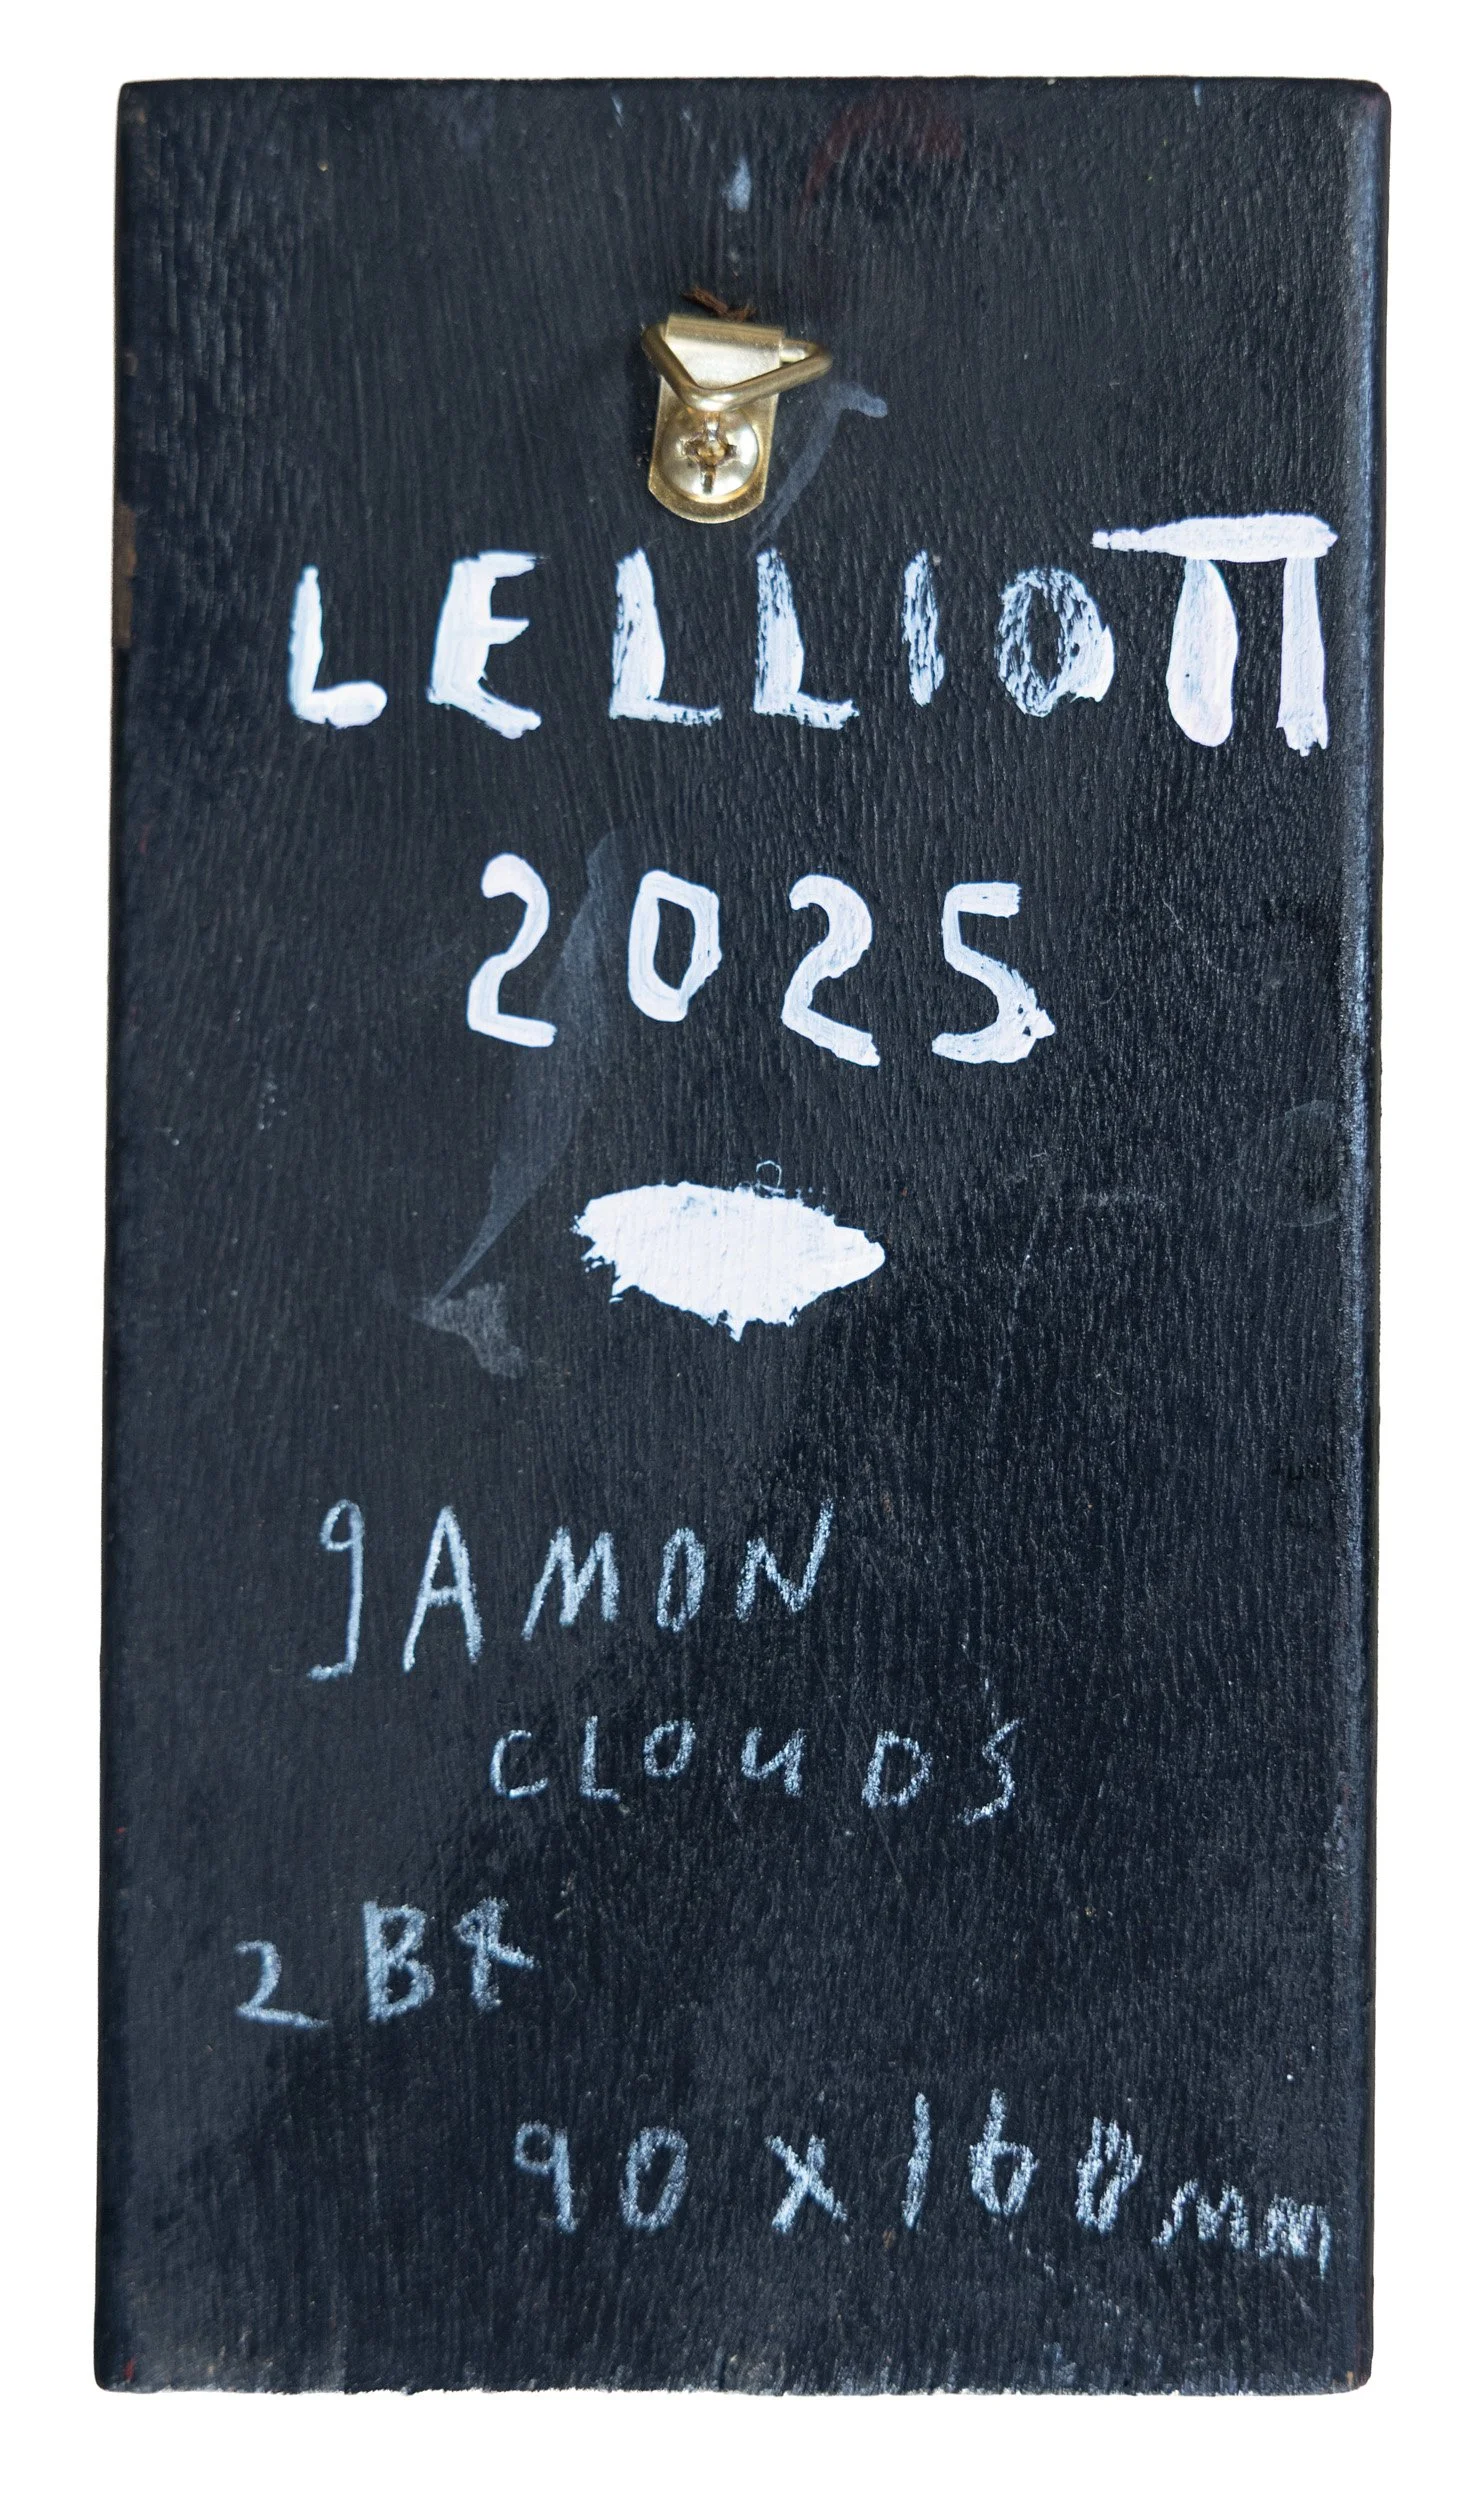 LELLIOTT
2025
gAMON
CLOUDS
90 x 160 mm